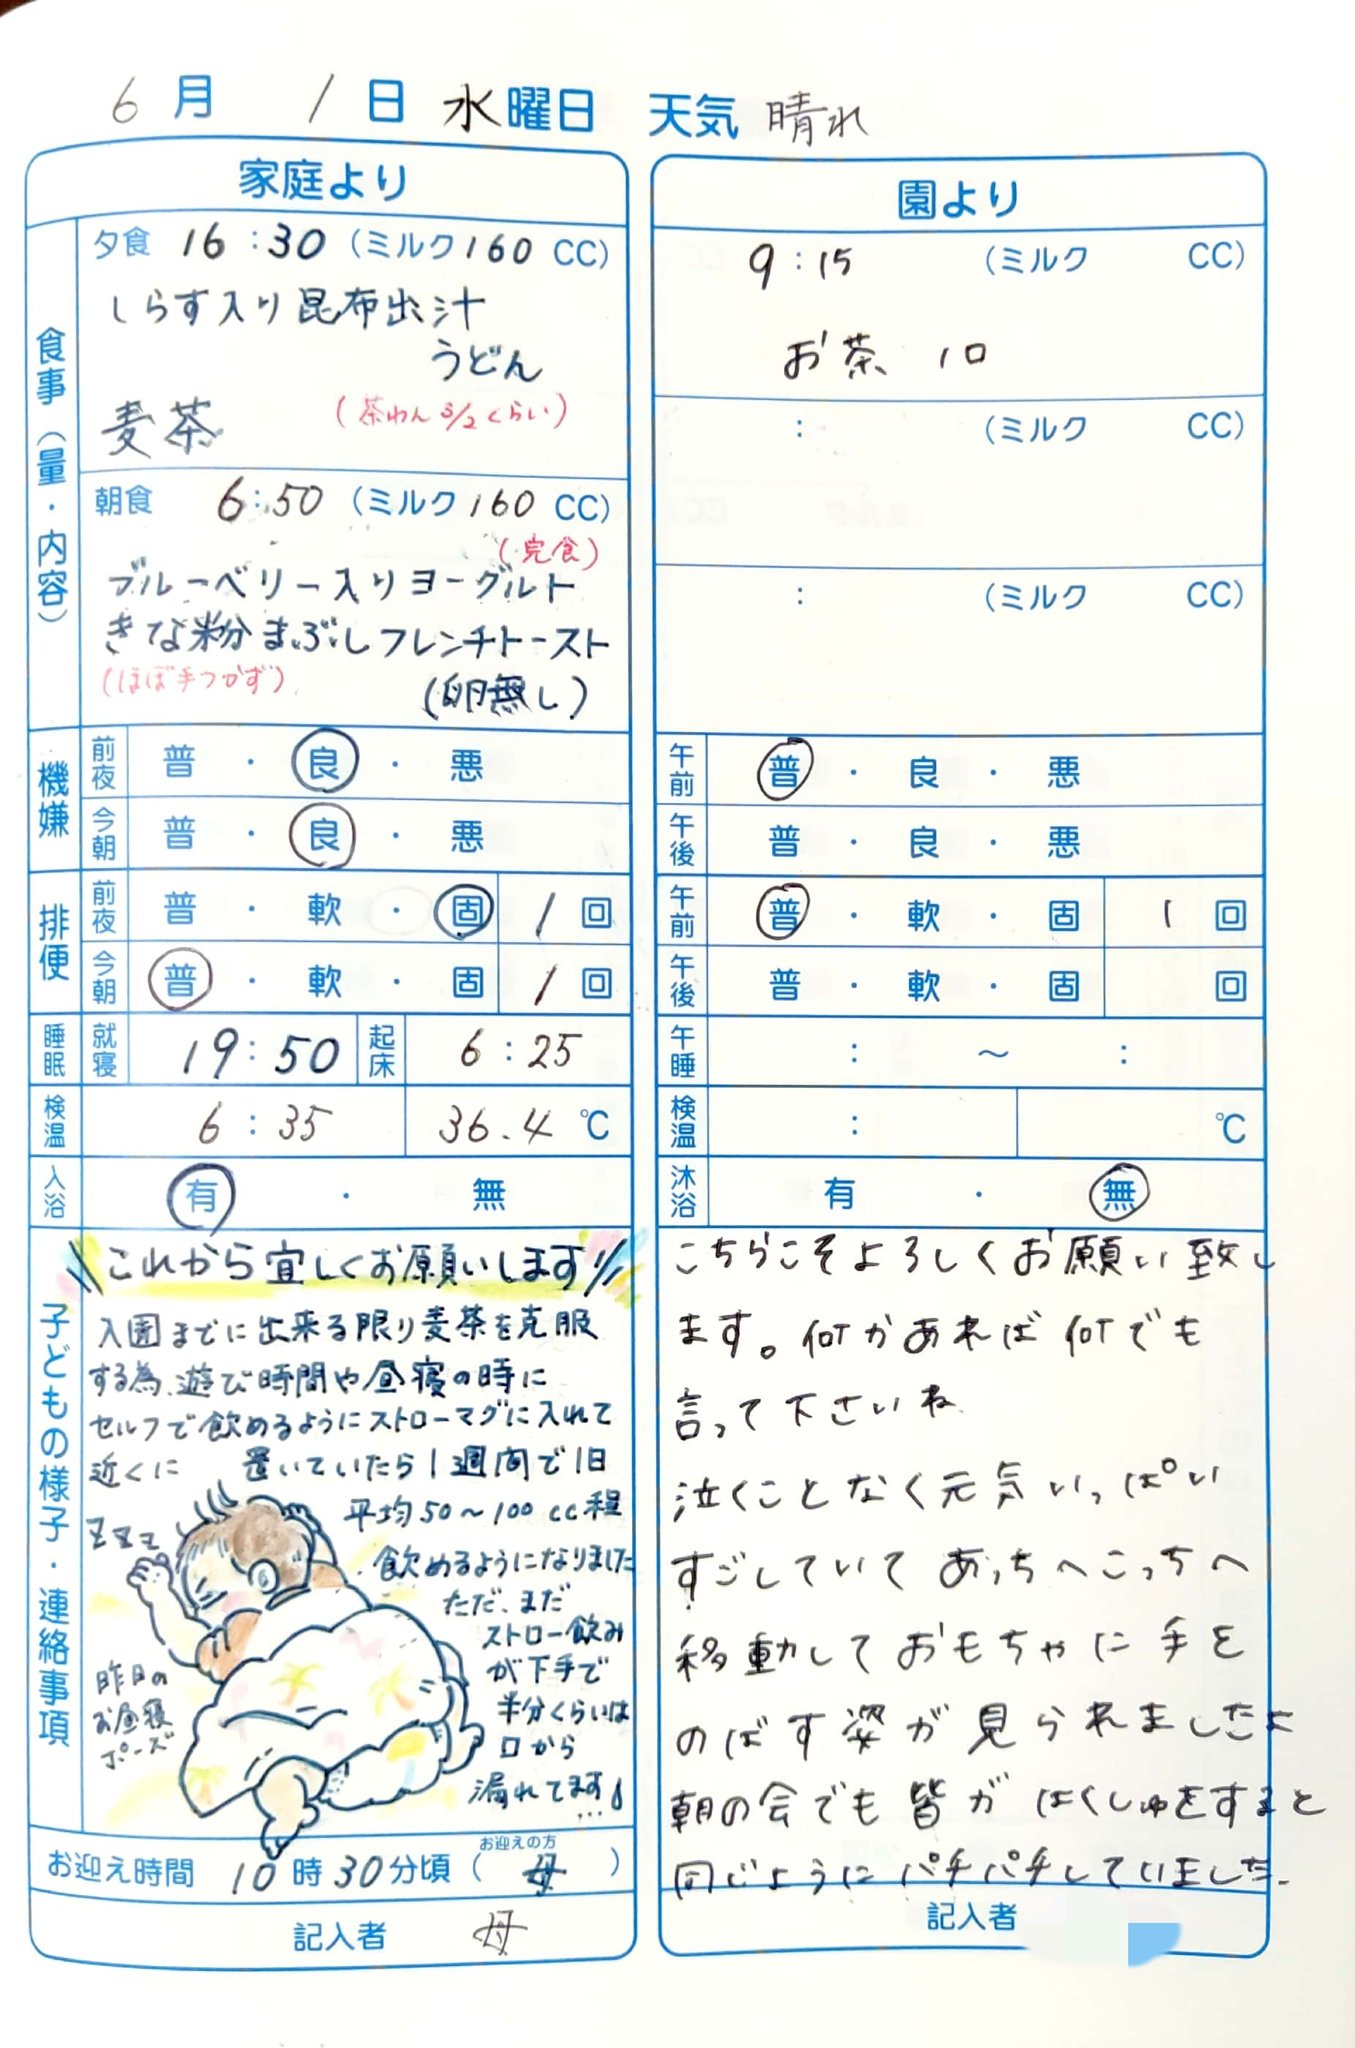 6月 1日 水曜日 天気 晴れ
家庭より
食事（量・内容）
夕食 16:30 (ミルク160 CC)
しらす入り昆布出汁
うどん
(茶わん3/2くらい)
麦茶
朝食 6:50 (ミルク160 CC)
(完食)
ブルーベリー入りヨーグルト
きな粉まぶしフレンチトースト
(ほぼ手つかず)
(卵無し)
機嫌
前夜 普・良・悪
今朝 普・良・悪
排便
前夜 普・軟・固 1回
今朝 普・軟・固 1回
睡眠 就寝 19:50 起床 6:25
検温 6:35 36.4℃
入浴 有・無
子どもの様子・連絡事項
\\これから宜しくお願いします//
入園までに出来る限り麦茶を克服
する為、遊び時間や昼寝の時に
セルフで飲めるようにストローマグに入れて
近くに 置いていたら1週間で1日
平均50〜100cc程
飲めるようになりました
ただ、まだ
ストロー飲み
が下手で
半分くらいは
口から
漏れてます
...
ZZZZ
昨日の
お昼寝
ポーズ
お迎え時間 10時30分頃 (お迎えの方 母)
記入者 母
園より
9:15 (ミルク CC)
お茶 1口
: (ミルク CC)
: (ミルク CC)
午前 普・良・悪
午後 普・良・悪
午前 普・軟・固 1回
午後 普・軟・固 回
午睡 : 〜 :
検温 : ℃
沐浴 有・無
こちらこそよろしくお願い致し
ます。何かあれば何でも
言って下さいね
泣くことなく元気いっぱい
すごしていて あっちへこっちへ
移動しておもちゃに手を
のばす姿が見られましたよ
朝の会でも皆がはくしゅをすると
同じようにパチパチしていました。
記入者